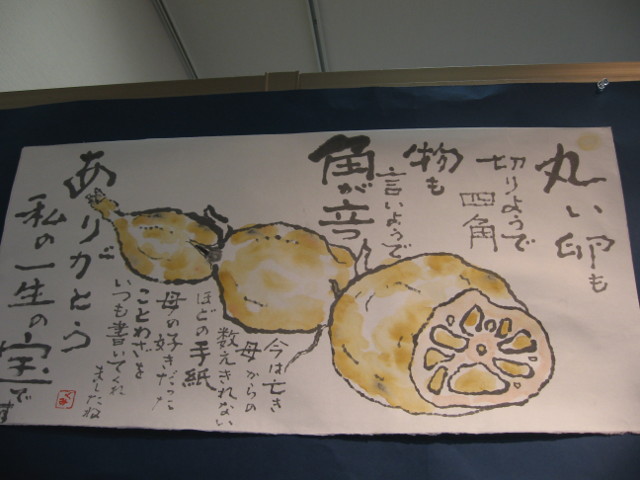 丸い卵も
切りようで
四角
物も
言いようで
角が立つ
今は亡き
母からの
数えきれない
ほどの手紙
母の好きだった
ことわざを
いつも書いてくれ
ましたね
ありがとう
私の一生の宝です
くみ